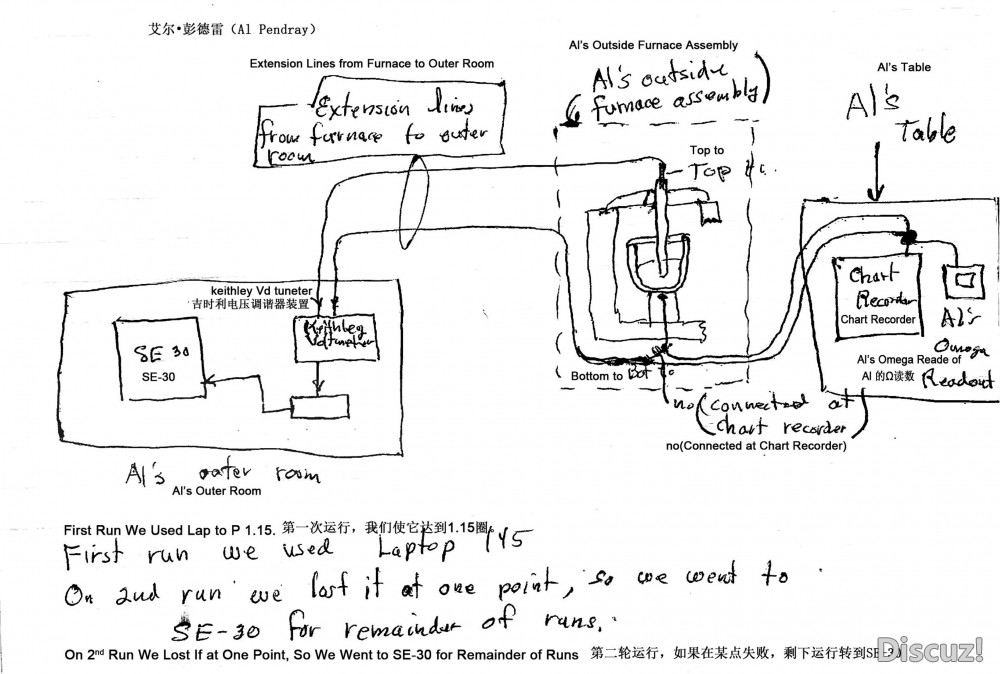 艾尔•彭德雷（Al Pendray）
Extension Lines from Furnace to Outer Room
Extension lines
from furnace to outer
room
Al's Outside Furnace Assembly
Al's outside
furnace assembly
Al's Table
Al's
Table
Top to
Top
keithley Vd tuneter
吉时利电压调谐器装置
Keithley
SE 30
SE-30
Chart
Recorder
Chart Recorder
Al's
Omega
Readout
Al's Omega Reade of
Al 的Ω读数
Bottom to
Bot to
no (connected at
chart recorder)
no(Connected at Chart Recorder)
Al's outer room
Al's Outer Room
First Run We Used Lap to P 1.15. 第一次运行，我们使它达到1.15圈。
First run we used Laptop 145
On 2nd run we lost it at one point, so we went to
SE-30 for remainder of runs.
On 2nd Run We Lost If at One Point, So We Went to SE-30 for Remainder of Runs 第二轮运行，如果在某点失败，剩下运行转到SE-30
Discuz!